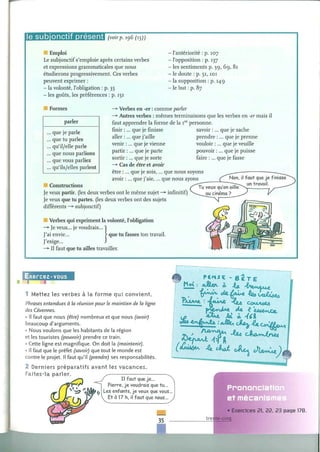 le subjonctif présent (voir p. 196 (13))
Emploi
Le subjonctif s'emploie après certains verbes
et expressions grammaticales que nous
étudierons progressivement. Ces verbes
peuvent exprimer :
– la volonté, l'obligation : p. 35
– les goûts, les préférences : p. 151
– l'antériorité : p. 107
– l'opposition : p. 137
– les sentiments p. 59, 69, 81
– le doute : p. 51, 101
– la supposition : p. 149
– le but : p. 87
Formes
parler
... que je parle
... que tu parles
... qu'il/elle parle
... que nous parlions
... que vous parliez
... qu'ils/elles parlent
→ Verbes en -er : comme parler
→ Autres verbes : mêmes terminaisons que les verbes en -er mais il
faut apprendre la forme de la 1re personne.
finir : ... que je finisse
aller : ... que j'aille
venir : ... que je vienne
partir : ... que je parte
sortir : ... que je sorte
savoir : ... que je sache
prendre : ... que je prenne
vouloir : ... que je veuille
pouvoir : ... que je puisse
faire : ... que je fasse
→ Cas de être et avoir
être : ... que je sois, ... que nous soyons
avoir : ... que j'aie, ... que nous ayons
Constructions
Je veux partir. (les deux verbes ont le même sujet → infinitif)
Je veux que tu partes. (les deux verbes ont des sujets
différents → subjonctif)
Tu veux qu'on aille
au cinéma ?
Non, il faut que je finisse
un travail.
Verbes qui expriment la volonté, l'obligation
→ Je veux... je voudrais...
J'ai envie...
J'exige...
que tu fasses ton travail.
→ Il faut que tu ailles travailler.
Exercez-vous
1 Mettez les verbes à la forme qui convient.
Phrases entendues à la réunion pour le maintien de la ligne
des Cévennes.
• Il faut que nous (être) nombreux et que nous (avoir)
beaucoup d'arguments.
• Nous voulons que les habitants de la région
et les touristes (pouvoir) prendre ce train.
• Cette ligne est magnifique. On doit la (maintenir).
• Il faut que le préfet (savoir) que tout le monde est
contre le projet. Il faut qu'il (prendre) ses responsabilités.
2 Derniers préparatifs avant les vacances.
Faites-la parler.
Il faut que je...
Pierre, je voudrais que tu...
Les enfants, je veux que vous...
Et à 17 h, il faut que nous...
PENSE-BÊTE
Moi : aller à la banque
finir de faire les valises
Pierre : faire les courses
prendre de l'essence
être là à 16h
Les enfants : aller chez le coiffeur
ranger les chambres
Départ 17 h
(laisser le chat chez Mamie)
Prononciation
et mécanismes
• Exercices 21, 22, 23 page 178.
35
trente-cinq